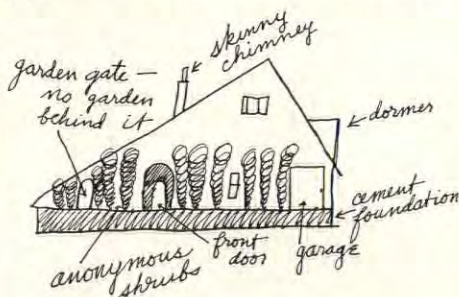 skinny
chimney
garden gate —
no garden
behind it
dormer
cement
foundation
anonymous
shrubs
front
door
garage